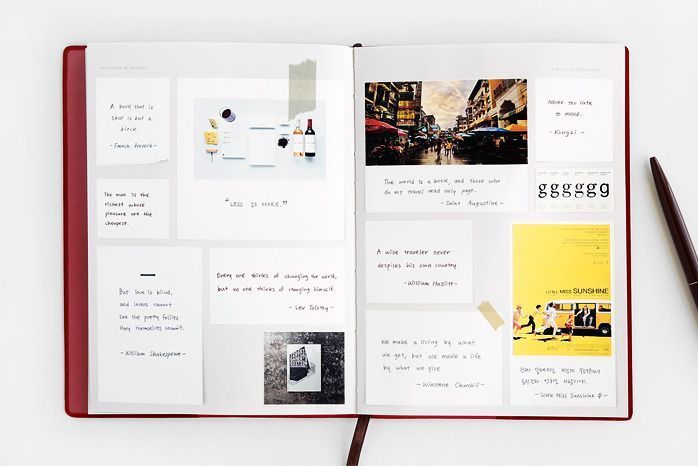 A book that is
shut is but a
block.
- French Proverb -
The man is the
richest whose
pleasure are the
cheapest.
But love is blind,
and lovers cannot
see the pretty follies
they themselves commit.
- William Shakespeare -
"LESS IS MORE."
Every one thinks of changing the world,
but no one thinks of changing himself.
- Lev Tolstoy -
The world is a book, and those who
do not travel read only page.
- Saint Augustine -
Never too late
to mend.
- Kongzi -
g g g g g g
A wise traveler never
despises his own country.
- William Hazlitt -
We make a living by what
we get, but we make a life
by what we give
- Winstone Churchill -
LITTLE MISS SUNSHINE
- Little Miss Sunshine 中 -